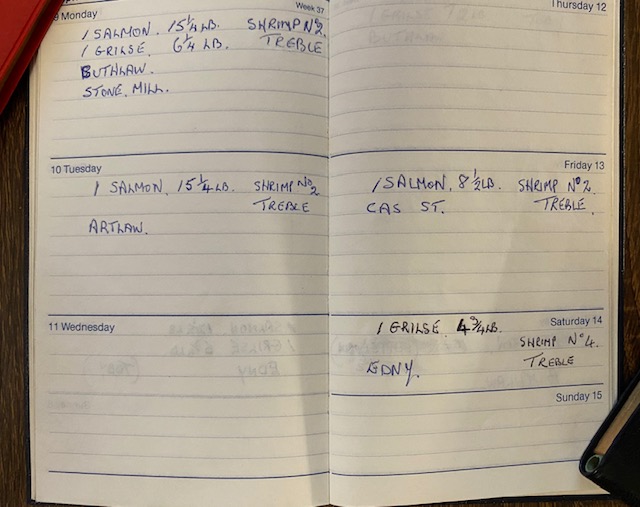 9 Monday Week 37
1 SALMON. 15 1/4 LB. SHRIMP No 2.
1 GRILSE. 6 1/4 LB. TREBLE
BUTHLAW.
STONE. MILL.
10 Tuesday
1 SALMON. 15 1/4 LB. SHRIMP No 2
TREBLE
ARTLAW.
11 Wednesday
Thursday 12
Friday 13
1 SALMON, 8 1/2 LB. SHRIMP No 2.
CAS ST. TREBLE.
Saturday 14
1 GRILSE. 4 3/4 LB.
SHRIMP No 4.
EDNY. TREBLE
Sunday 15